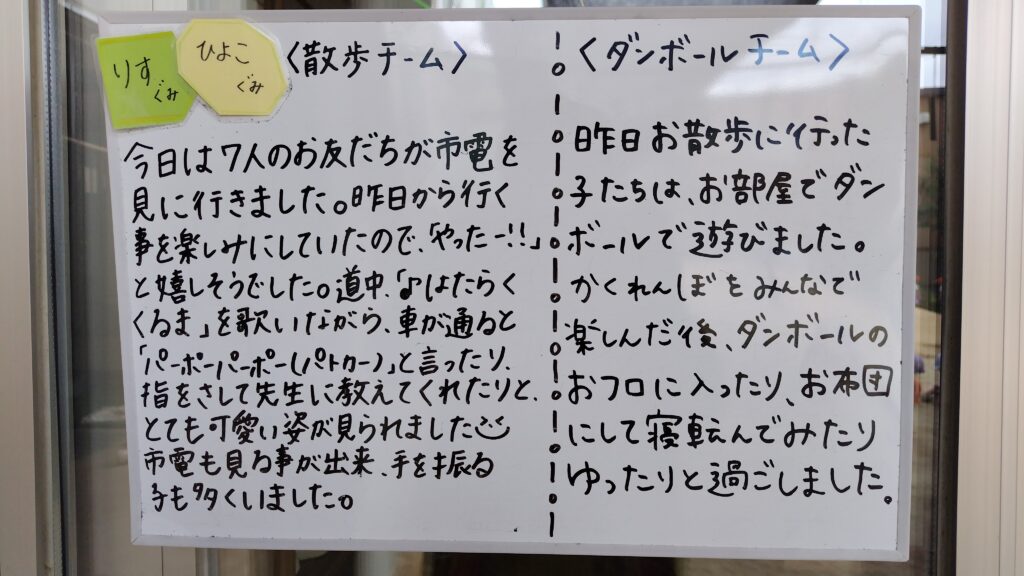 りす
ぐみ
ひよこ
ぐみ
〈散歩チーム〉
今日は7人のお友だちが市電を
見に行きました。昨日から行く
事を楽しみにしていたので、「やったー!!」
と嬉しそうでした。道中、「♪はたらく
くるま」を歌いながら、車が通ると
「パーポーパーポー(パトカー)」と言ったり、
指をさして先生に教えてくれたりと、
とても可愛い姿が見られました
市電も見る事が出来、手を振る
子も多くいました。
〈ダンボールチーム〉
昨日お散歩に行った
子たちは、お部屋でダン
ボールで遊びました。
かくれんぼをみんなで
楽しんだ後、ダンボールの
おフロに入ったり、お布団
にして寝転んでみたり
ゆったりと過ごしました。